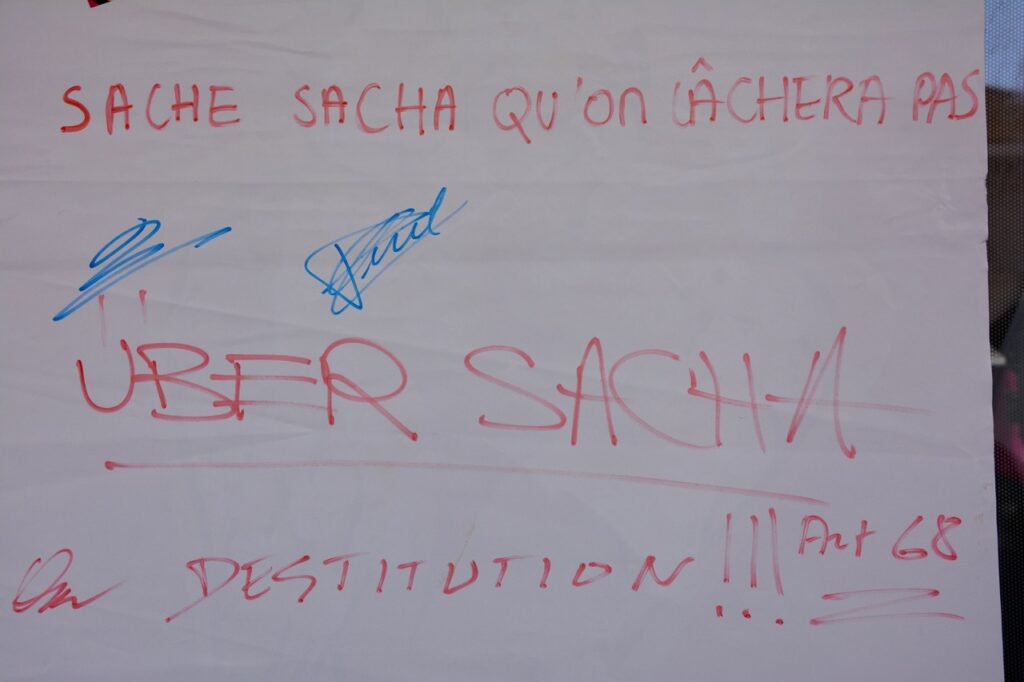 SACHE SACHA QU'ON LÂCHERA PAS
ÜBER SACHA
DESTITUTION !!! Art 68